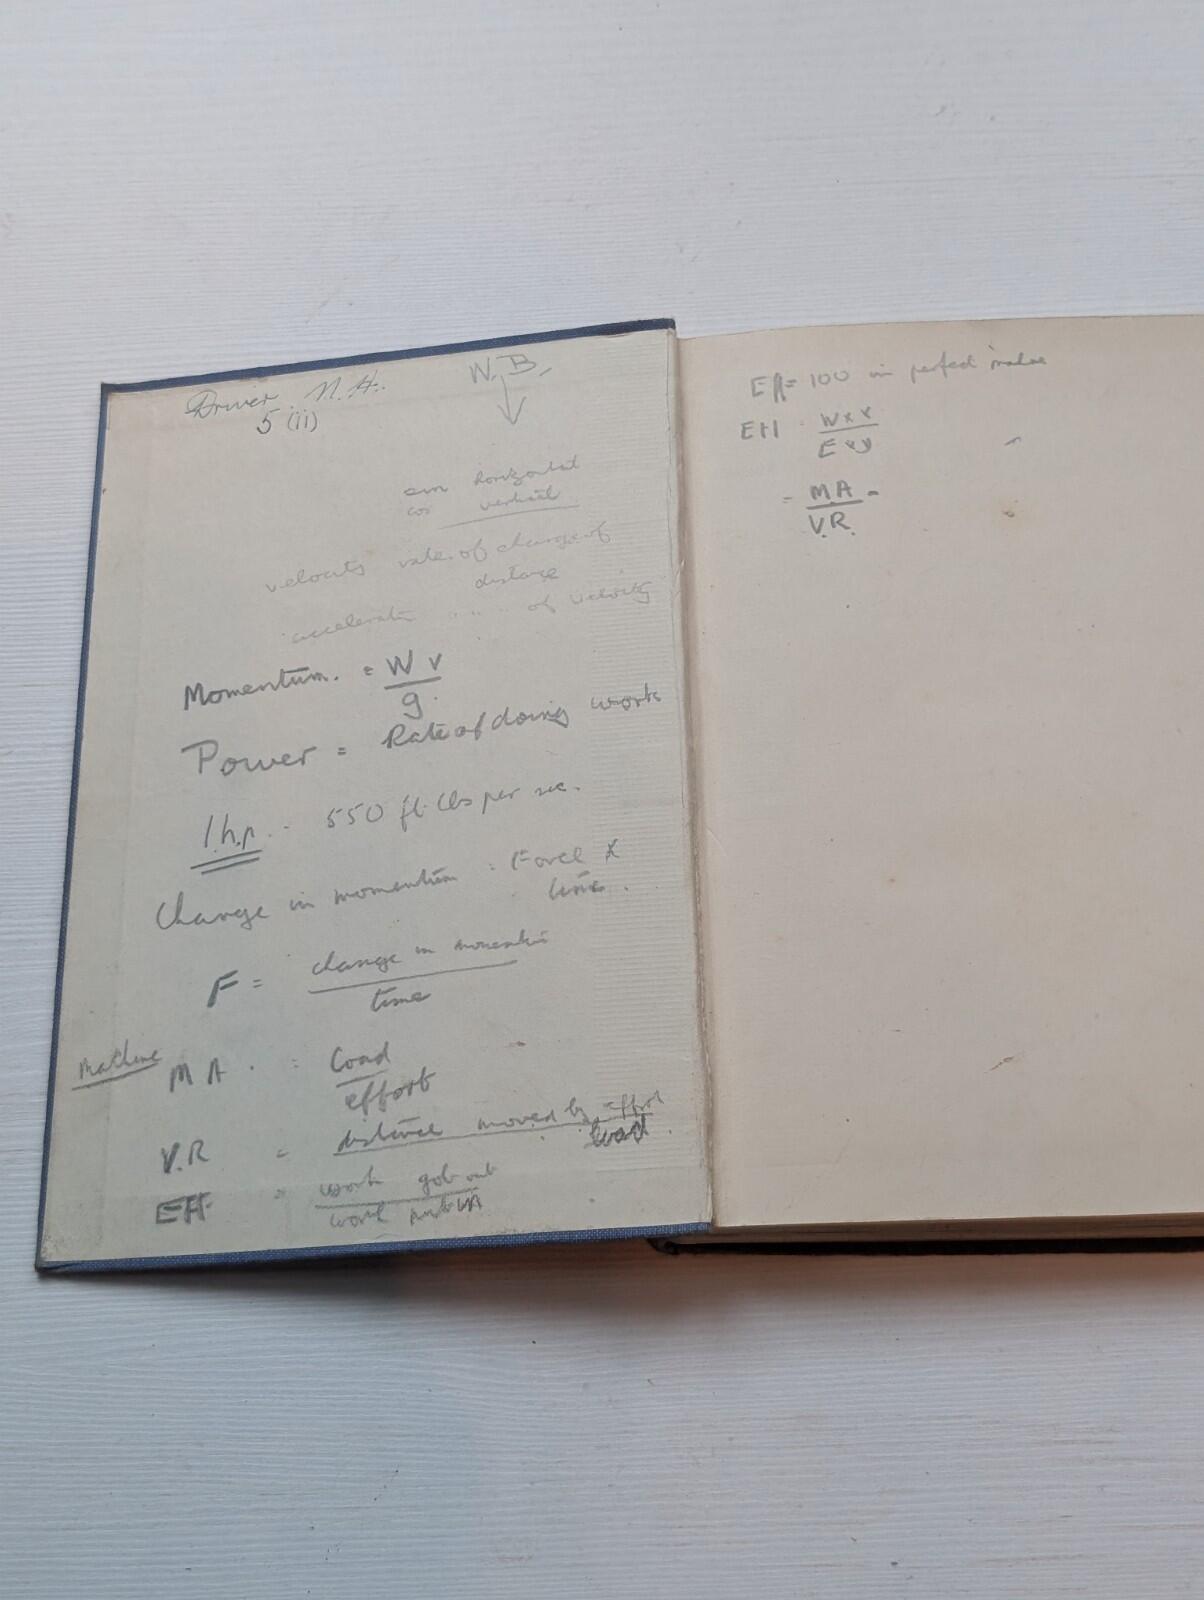 Driver N.H.
5 (ii)
N.B.
sin horizontal
cos vertical
velocity rate of change of
distance
acceleration " " " of velocity
Momentum. = W v
g.
Power = Rate of doing work
1.h.p. 550 ft. lbs per sec.
Change in momentum = Force ×
time.
F = change in momentum
time
Machine
M A. = Load
effort
V.R = distance moved by effort
load.
Eff = work got out
work put in
Eff = 100 in perfect
Eff = W × x
E × y
= M.A
V.R.